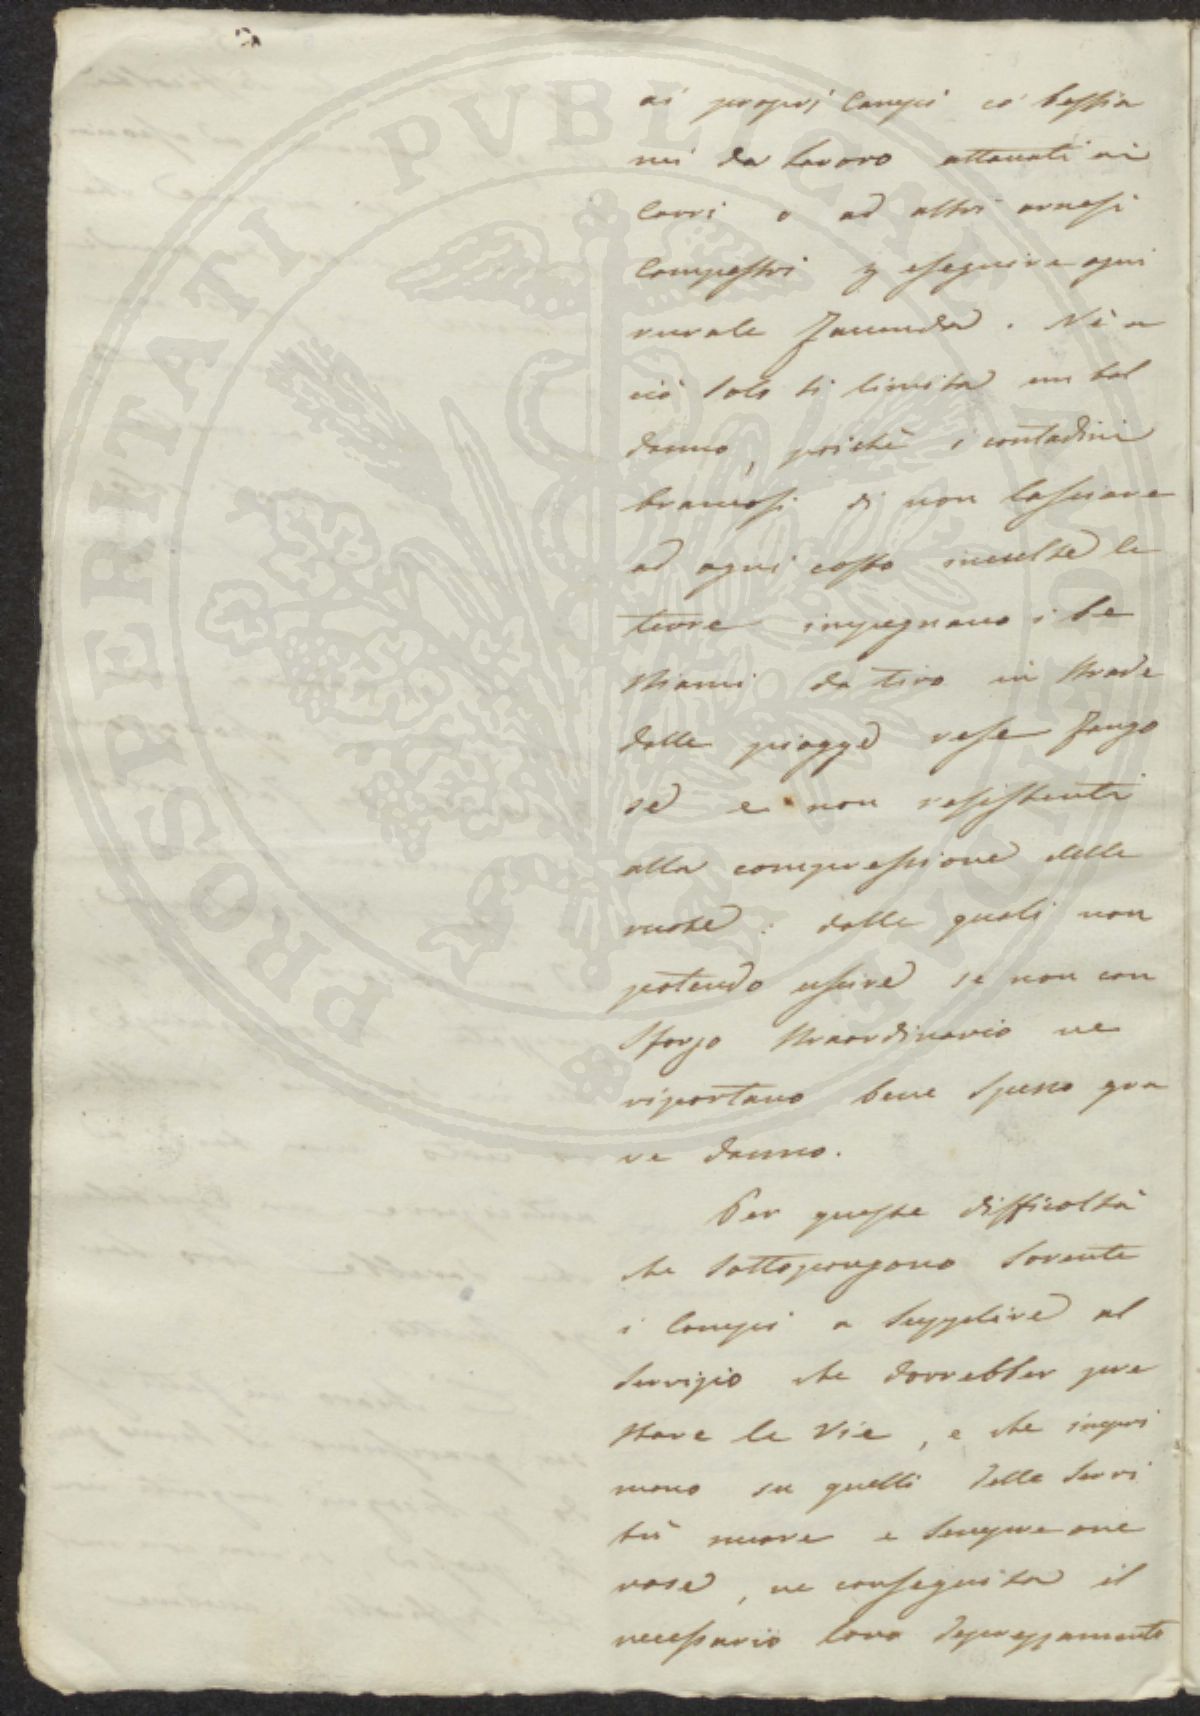 ai proprj Campi co' bestia
mi da lavoro attaccati ai
Carri o ad altri arnesi
Campestri p eseguire ogni
rurale facenda. Nè a
ciò solo si limita un tal
danno, poichè i contadini
bramosi di non lasciare
ad ogni costo incolte le
terre impegnano i be
stiami da tiro in strade
dalle piogge rese fango
se e non resistenti
alla compressione delle
ruote: dalle quali non
potendo uscire se non con
sforzo straordinario ne
riportano bene spesso gra
ve danno.
Per queste difficoltà
che sottopongono sovente
i Campi a supplire al
servizio che dovrebber pre
stare le Vie, e che impri
mono su quelli delle servi
tù nuove e sempre one
rose, ne conseguita il
necessario loro deprezzamento
PROSPERITATI PVBLICAE AVGENDAE